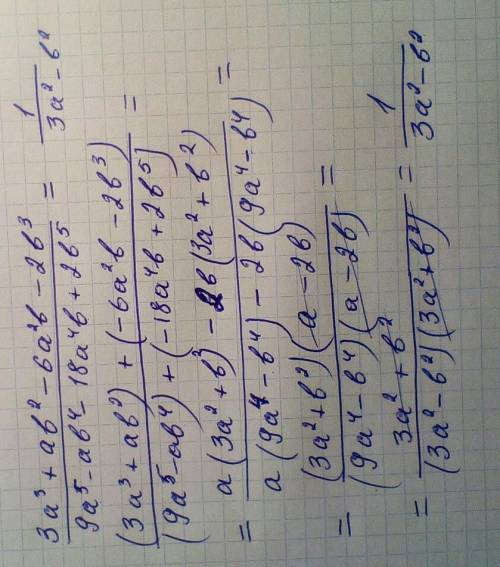 (3a³ + ab² - 6a²b - 2b³) / (9a⁵ - ab⁴ - 18a⁴b + 2b⁵) = 1 / (3a² - b²)
((3a³ + ab²) + (-6a²b - 2b³)) / ((9a⁵ - ab⁴) + (-18a⁴b + 2b⁵)) =
= (a(3a² + b²) - 2b(3a² + b²)) / (a(9a⁴ - b⁴) - 2b(9a⁴ - b⁴)) =
= ((3a² + b²)(a - 2b)) / ((9a⁴ - b⁴)(a - 2b)) =
= (3a² + b²) / ((3a² - b²)(3a² + b²)) = 1 / (3a² - b²)